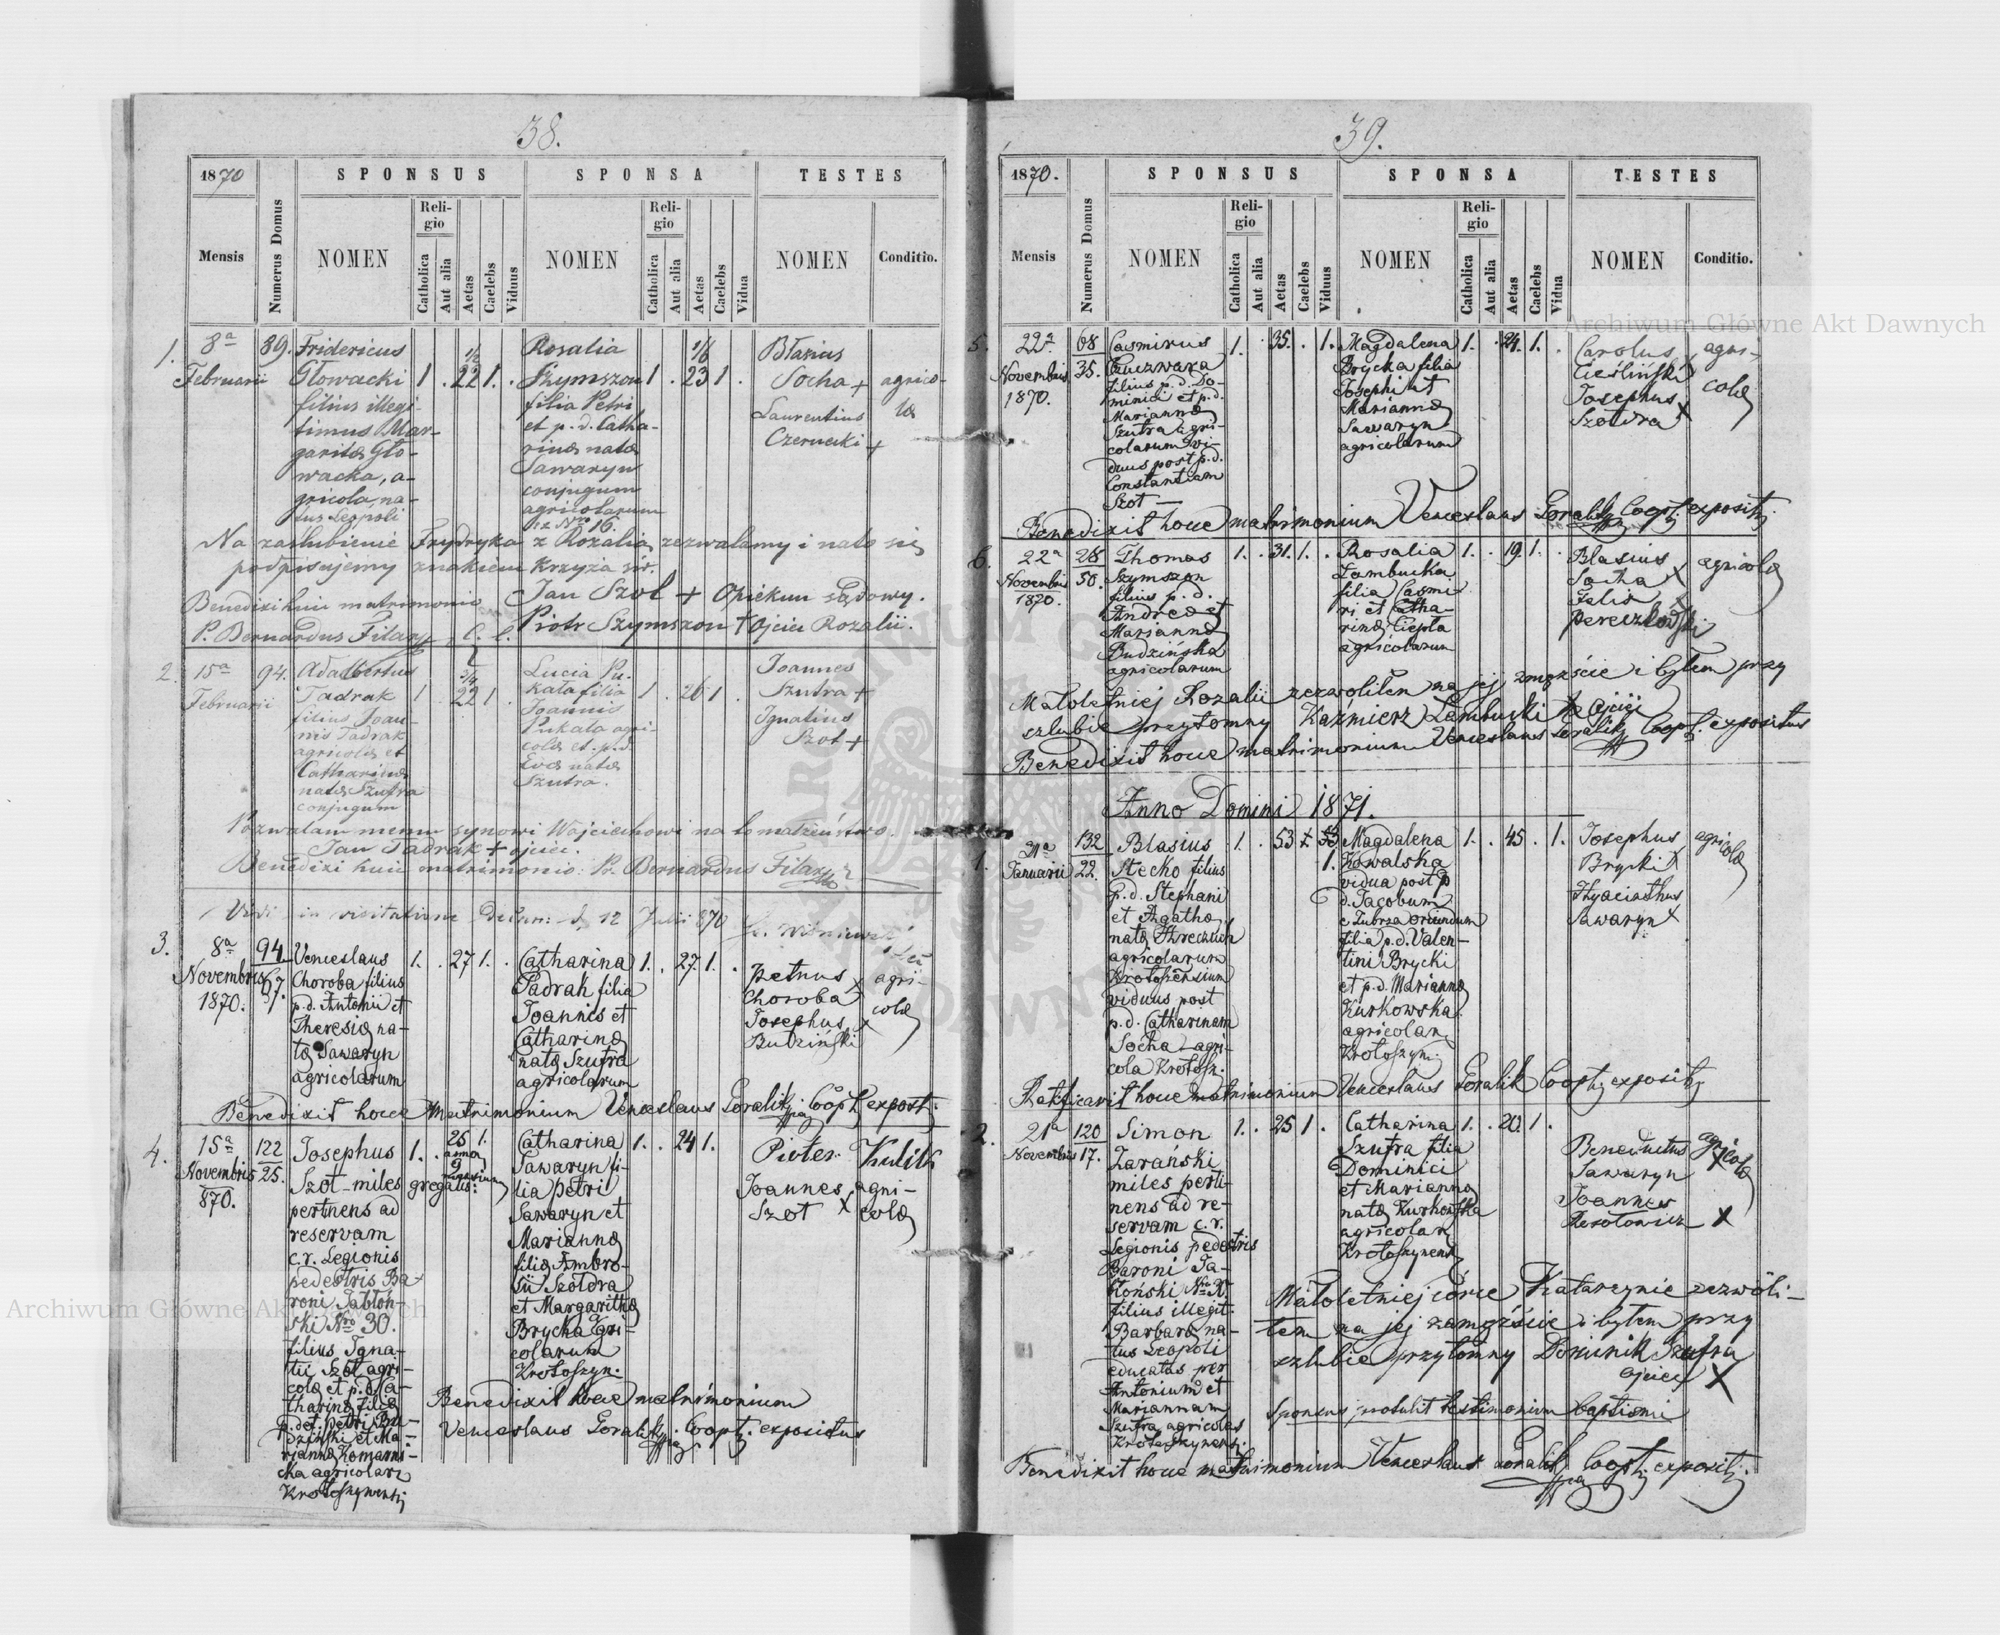 38.
1870
SPONSUS
SPONSA
TESTES
Mensis
Numerus Domus
NOMEN
Religio
Catholica
Aut alia
Aetas
Caelebs
Viduus
NOMEN
Religio
Catholica
Aut alia
Aetas
Caelebs
Vidua
NOMEN
Conditio.
1.
8a
Februarii
89.
Fridericus
Głowacki
filius illegi-
timus Mar-
garitae Gło-
wacka, a-
gricola, na-
tus Leopoli
1 . 22 1 .
Rosalia
Szymszon
filia Petri
et p. d. Catha-
rinae natae
Sawaryn
conjugum
agricolarum
iz Nro 16.
1 . 23 1 .
Błasius
Socha +
Laurentius
Czernecki +
agrico-
lae
Na zaślubienie Frydryka z Rozalią zezwalamy i nato się
podpisujemy znakiem Krzyża św.
Jan Szot + Opiekun sądowy.
Piotr Szymszon + Ojciec Rozalii.
Benedixi huic matrimonio
P. Bernardus Filary
2.
15a
Februarii
94.
Adalbertus
Padrak
filius Joan-
nis Padrak
agricolae et
Catharinae
natae Szufra
conjugum
1 . 22 1
Lucia Pu-
kała filia
Joannis
Pukała agri-
colae et p. d.
Evae natae
Szufra.
1 . 26 1 .
Joannes
Szufra +
Ignatius
Szot +
Pozwalam memu synowi Wojciechowi na to małzeństwo.
Jan Padrak + ojciec.
Benedixi huic matrimonio: P. Bernardus Filary
Vidi in visitatione Decan: d. 12 Julii 870
3.
8a
Novembris
1870.
94
67.
Venceslaus
Choroba filius
p.d. Antonii et
Theresiae na-
tae Sawaryn
agricolarum
1. . 27 1. .
Catharina
Padrak filia
Joannis et
Catharinae
natae Szufra
agricolarum
1. . 27 1. .
Petrus x
Choroba
Josephus x
Budziński
agri-
colae
Benedixit hocce matrimonium Venceslaus Goralik Coop. exposit.
4.
15a
Novembris
870.
122
25.
Josephus
Szot miles gregarius
pertinens ad
reservam
c.r. Legionis
pedestris Ba-
roni Jabłoń-
ski Nro 30.
filius Igna-
tii Szot agri-
colae et p.d. Ca-
tharinae filiae
p.d. Petri Bu-
dziński et Ma-
riannae Komarni-
cka agricolar.
Krotoszynensi
1. . 25 1.
annor.
9
mensium
Catharina
Sawaryn fi-
lia Petri
Sawaryn et
Mariannae
filiae Ambro-
sii Szołdra
et Margarithae
Brycka agri-
colarum
Krotoszyn.
1. . 24 1.
Pioter Kulik
Joannes
Szot x
agri-
colae
Benedixit hocce matrimonium
Venceslaus Goralik Coop. expositus
39.
1870.
SPONSUS
SPONSA
TESTES
Mensis
Numerus Domus
NOMEN
Religio
Catholica
Aut alia
Aetas
Caelebs
Viduus
NOMEN
Religio
Catholica
Aut alia
Aetas
Caelebs
Vidua
NOMEN
Conditio.
5.
22a
Novembris
1870.
68
35.
Casmirus
filius p.d. Do-
minici et p.d.
Mariannae
Szufra agri-
colarum vi-
duus post p.d.
Constantiam
Szot
1. . 35. . 1.
Magdalena
Brycka filia
Josephi et
Mariannae
Sawaryn
agricolarum
1. . 24. 1. .
Carolus x
Cieśliński
Josephus x
Szołdra
agri-
colae
Benedixit hocce matrimonium Venceslaus Goralik Coop. exposit.
6.
22a
Novembris
1870.
28
50.
Thomas
Szymszon
filius p. d.
Andreae et
Mariannae
Budzińska
agricolarum
1. . 31. 1. .
Rosalia
Zambucka
filia Casmi-
ri et Catha-
rinae Ciepła
agricolarum
1. . 19. 1. .
Blasius
Socha x
Felix x
Pereczkowski
agricolae
Małoletniej Rozalii zezwoliłem na jej zamęzście i byłem przy
szlubie przytomny Kaźmierz Zembucki x ojciec
Benedixit hocce matrimonium Venceslaus Goralik Coop. expositus
Anno Domini 1871.
1.
31a
Januarii
132
22.
Blasius
Stecko filius
p. d. Stephani
et Agathae
natae Hreczuch
agricolarum
Krotoszensium
viduus post
p.d. Catharinam
Socha agri-
cola Krotosz.
1. . 53
1.
Magdalena
Kowalska
vidua post p
d. Jacobum
e Zubrza oriundum
filia p.d. Valen-
tini Brycki
et p.d. Mariannae
Kurkowska
agricolar.
Krotoszyn.
1. . 45 . 1.
Josephus
Brycki x
Hyacinthus
Sawaryn x
agricolae
Ratificavit hocce matrimonium Venceslaus Goralik Coop. exposit.
2.
21a
Novembris
120
17.
Simon
Zarański
miles perti-
nens ad re-
servam c.r.
Legionis pedestris
Baroni Ja-
błoński
filius illegit.
Barbarae na-
tus Leopoli
educatus per
Antonium et
Mariannam
Szufra agricolas
Krotoszynens.
1. . 25 1 .
Catharina
Szufra filia
Dominici
et Mariannae
natae Kurkowska
agricolar.
Krotoszynens
1. . 20. 1 .
Benedictus
Sawaryn x
Joannes
x
agricolae
Małoletniej córce Katarzynie zezwoli-
łem na jej zamęzście i byłem przy
szlubie przytomny Dominik Szufra
ojciec x
Sponsus protulit testimonium baptismi
Benedixit hocce matrimonium Venceslaus Goralik Coop. exposit.
Archiwum Główne Akt Dawnych
Archiwum Główne Akt Dawnych
ARCHIWUM GŁÓWNE AKT DAWNYCH